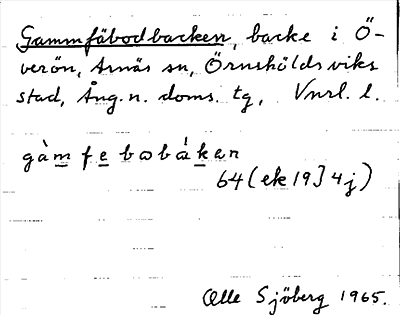 Gammfäbodbacken, backe i Ö-
verön, Arnäs sn, Örnsköldsviks
stad, Ång. n. doms. tg, Vnrl. l.
gàmfebωbákən
64 (ek 19J4j)
Olle Sjöberg 1965.